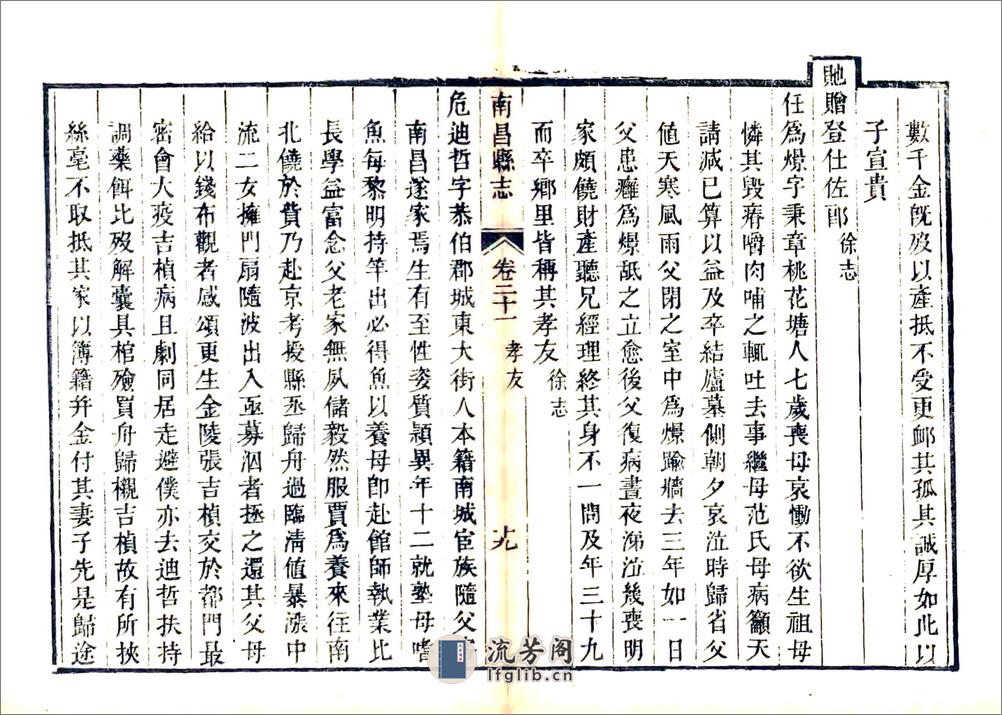 數千金旣歿以產抵不受更卹其孤其誠厚如此以
子宣貴
貤贈登仕佐郎徐志
任爲燝字秉章桃花塘人七歲喪母哀慟不欲生祖母
憐其毀瘠嚼肉哺之輒吐去事繼母范氏母病籲天
請減己算以益及卒結廬墓側朝夕哀泣時歸省父
値天寒風雨父閉之室中爲燝踰牆去三年如一日
父患癰爲燝舐之立愈後父復病晝夜涕泣幾喪明
家頗饒財產聽兄經理終其身不一問及年三十九
而卒鄉里皆稱其孝友徐志
南昌縣志 卷二十一 孝友 十九
危迪哲字恭伯郡城東大街人本籍南城宦族隨父
南昌遂家焉生有至性姿質穎異年十二就塾母嗜
魚每黎明持竿出必得魚以養母卽赴館師執業比
長學益富念父老家無夙儲毅然服賈爲養來往南
北饒於貲乃赴京考授縣丞歸舟過臨淸値暴漲中
流二女擁門扇隨波出入亟募泅者拯之還其父母
給以錢布觀者感頌更生金陵張吉楨交於都門最
密會大疫吉楨病且劇同居走避僕亦去迪哲扶持
調藥餌比歿解囊具棺殮買舟歸櫬吉楨故有所挾
絲毫不取抵其家以簿籍幷金付其妻子先是歸途
流芳阁
lfglib.cn